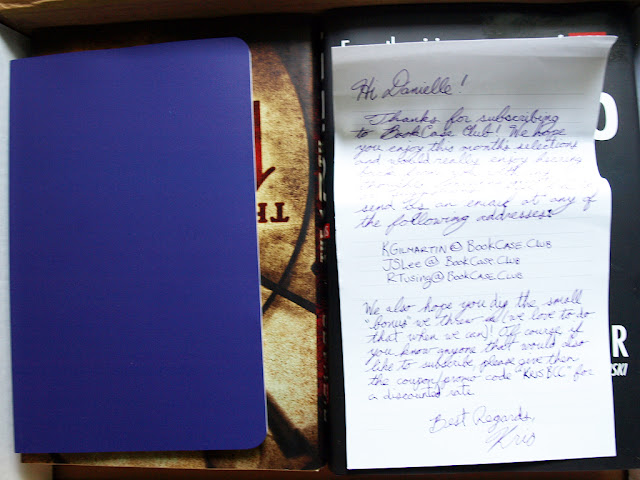 Hi Danielle!
Thanks for subscribing
to BookCase Club! We hope
you enjoy this month's selections
and would really enjoy hearing
back from you
send us an email at any of
the following addresses:
KGilmartin@BookCase.Club
JSLee@BookCase.Club
RTusing@BookCase.Club
We also hope you dig the small
"bonus" we threw in (we love to do
that when we can)! Of course if
you know anyone that would also
like to subscribe please give them
the coupon/promo code "KrisBCC" for
a discounted rate
Best Regards,
Kris
TH
O
R